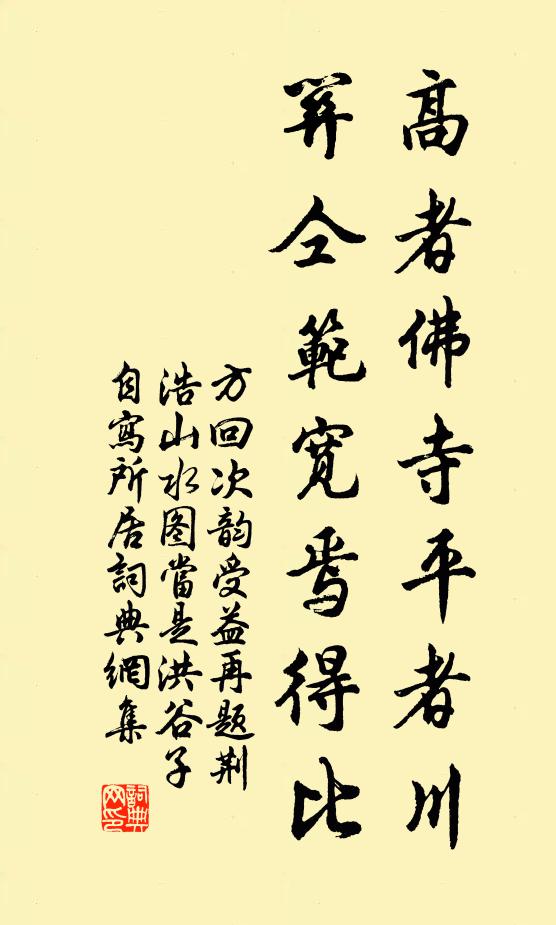 高者佛寺平者川
關仝範寬焉得比
方回次韵受益再题荆
浩山水图當是洪谷子
自寫所居詞典網集
詞典
网印